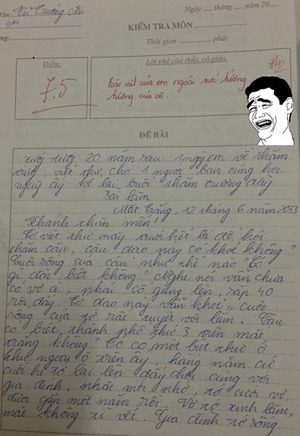 Ngày .... tháng .... năm 20....
KIỂM TRA MÔN
Thời gian .............. phút
Điểm:
Lời phê của thầy, cô giáo.
7.5
Bài viết của em ngoài sức tưởng
tượng của cô.
ĐỀ BÀI
20 năm sau 1 ngày em về thăm
trường, viết thư cho 1 người bạn cùng lớp
ngày ấy kể lại buổi thăm trường đầy
Bài làm
Mặt Trăng, 12 tháng 6 năm 2033
Thanh thân mến!
thư này trước hết là để hỏi
thăm cậu, cậu dạo này có khỏe không?
Cuộc sống của cậu như thế nào? Có
gì đặc biệt không? Nghe nói vẫn chưa
có vợ à, phải cố gắng lên, sắp 40
rồi đấy. Tớ dạo này vẫn khỏe, cuộc
sống của tớ rất tuyệt vời lắm. Cậu
có biết, thành phố thứ 3 trên mặt
trăng không? Tớ có một biệt thự ở
khu ngoại ô trên ấy, hàng năm cứ
cuối hè tớ lại lên đấy chơi cùng với
gia đình, nhắc mới nhớ, tớ cưới vợ
được gần một năm rồi. Vợ tớ xinh lắm,
mái không tì vết. Gia đình tớ sống